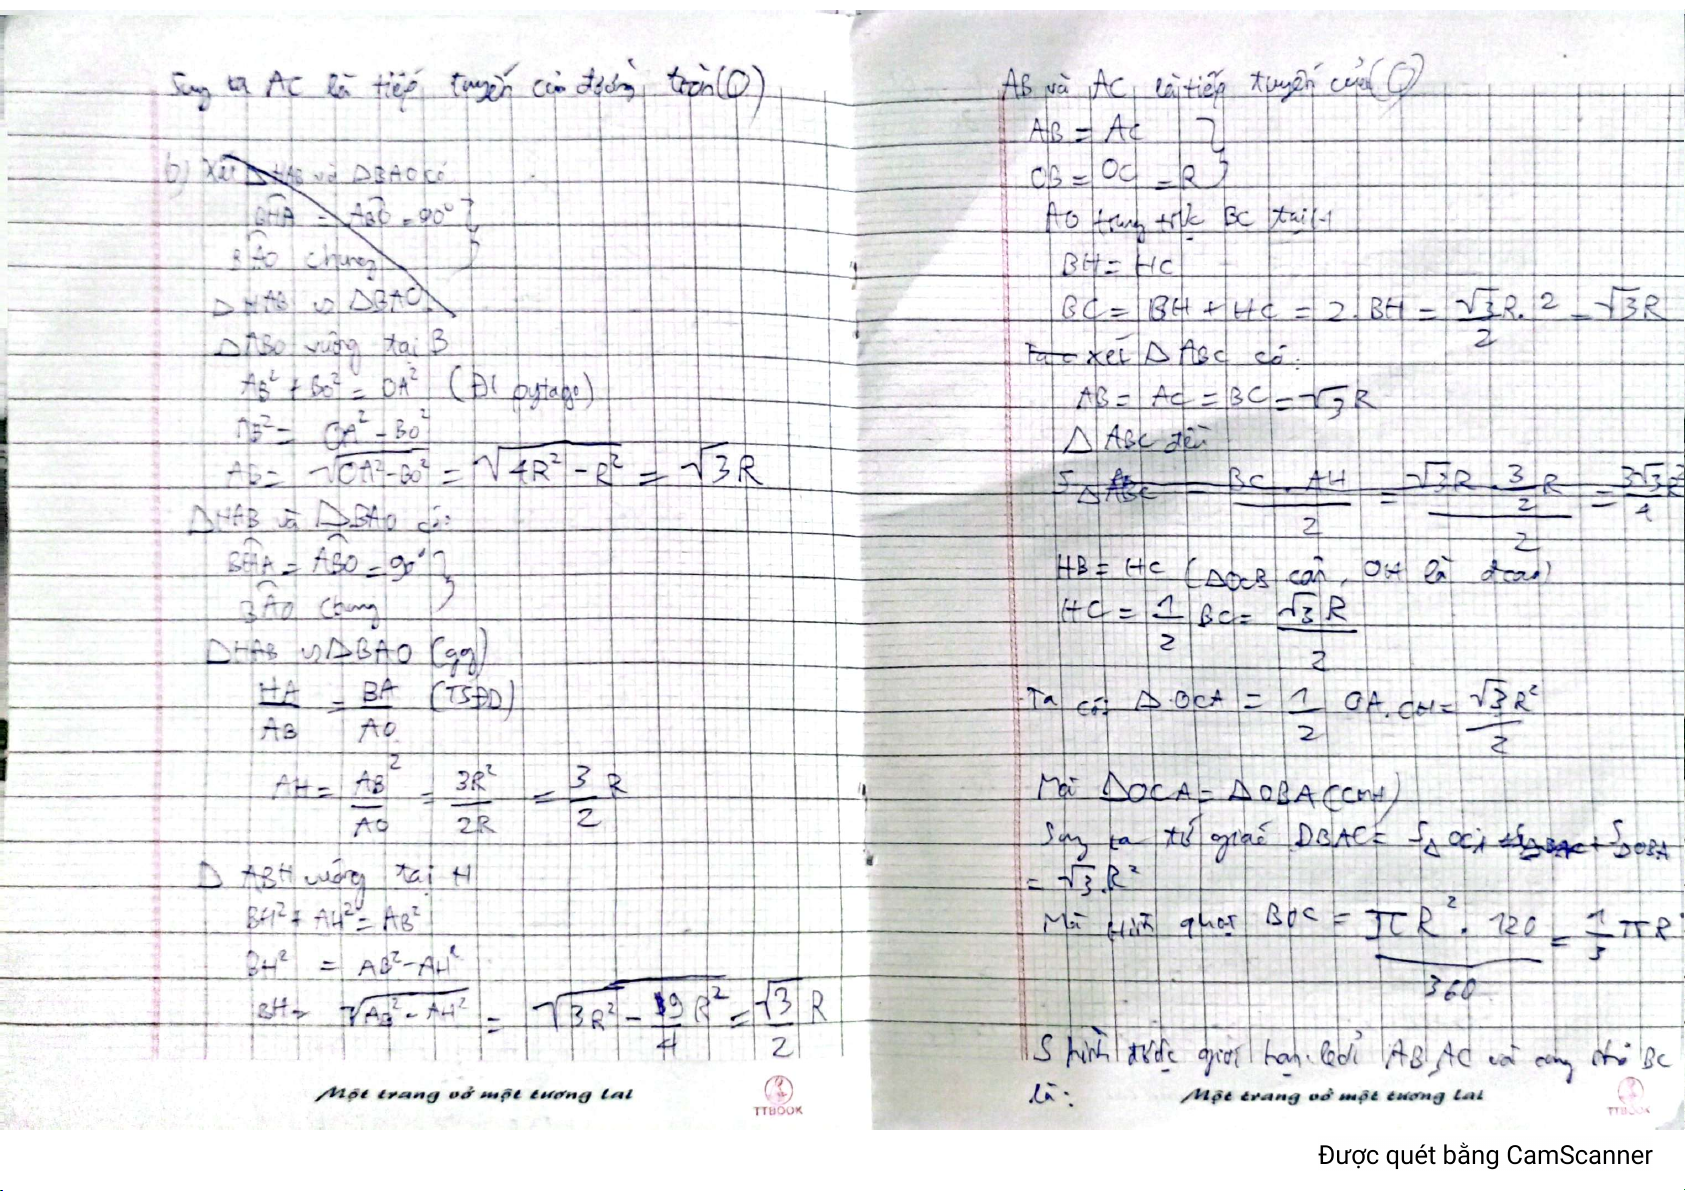 Suy ra AC là tiếp tuyến của đường tròn (O)
b) Xét △HAB và △BAO có
BHA = ABO = 90°
BAO chung
△HAB ∽ △BAO
△ABO vuông tại B
AB² + BO² = OA² (Đl pytago)
AB² = OA² - BO²
AB = √(OA² - BO²) = √(4R² - R²) = √3 R
△HAB và △BAO có:
BHA = ABO = 90°
BAO chung
△HAB ∽ △BAO (gg)
HA/AB = BA/AO (TSĐD)
AH = AB²/AO = 3R²/2R = 3/2 R
△ ABH vuông tại H
BH² + AH² = AB²
BH² = AB² - AH²
BH = √(AB² - AH²) = √(3R² - 9/4 R²) = √3/2 R
Một trang vở một tương lai
TTBOOK
AB và AC là tiếp tuyến của (O)
AB = AC
OB = OC = R
AO trung trực BC tại H
BH = HC
BC = BH + HC = 2. BH = √3R/2 . 2 = √3 R
xét △ ABC có:
AB = AC = BC = √3 R
△ ABC đều
S△ABC = BC . AH/2 = √3R . 3/2 R/2 = 3√3R²/4
HB = HC (△OCB cân, OH là đcao)
HC = 1/2 BC = √3 R/2
Ta có: △OCA = 1/2 OA.CH = √3 R²/2
Mà △OCA = △OBA (cmt)
Suy ra tứ giác OBAC = S△OCA + S△OBA
= √3.R²
Mà Hình quạt BOC = πR² . 120/360 = 1/3 πR²
S hình được giới hạn bởi AB, AC và cung nhỏ BC
là:
Một trang vở một tương lai
TTBOOK
Được quét bằng CamScanner